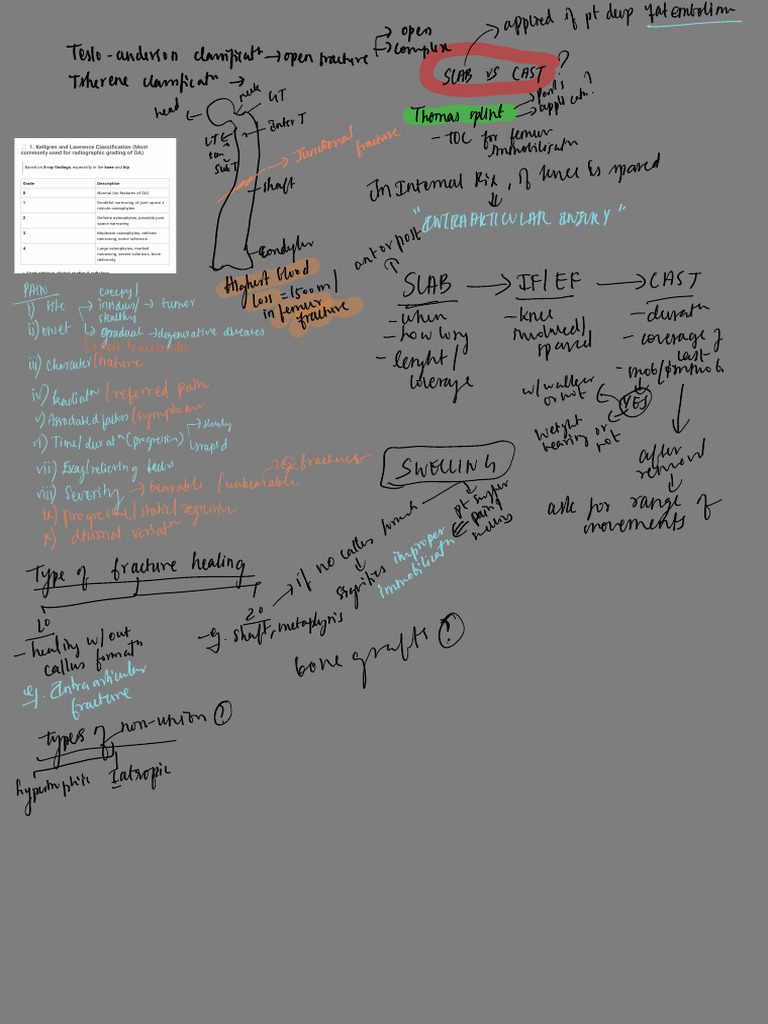 applied if pt devp fat embolism
Testo-anderson classificatn → open fracture → open
complex
Tsherene classificatn →
SLAB vs CAST ?
head
neck
GT
inter T
LT
Sub T
shaft
Condyles
Junctional
fracture
Thomas splint → parts ?
applicatn ?
- TOC for femur
immobilisatn
1. Kellgren and Lawrence Classification (Most
commonly used for radiographic grading of OA)
Based on X-ray findings, especially in the knee and hip
Grade Description
0 Normal (no features of OA)
1 Doubtful narrowing of joint space ± minute osteophytes
2 Definite osteophytes, possible joint space narrowing
3 Moderate osteophytes, definite narrowing, some sclerosis
4 Large osteophytes, marked narrowing, severe sclerosis, bone deformity
In Internal fix, if knee is spared
"INTRAARTICULAR INJURY"
Highest blood
loss = 1500ml
in femur
fracture
ant or post
SLAB → IF/EF → CAST
- when
- how long
- lenght/
coverage
- knee
involved/
spared
- duratn
- coverage of
cast
- mob/immob
YES
w/walker
or not
weight
bearing or
not
after
removal
ask for range of
movements
PAIN
i) site
ii) onset
creepy/
insidius/
stealthy
→ tumor
gradual → degenerative diseases
iii) Character/nature
iv) Radiatn/referred pain
v) Associated factors/symptoms
vi) Time/duratn (progression)
slowly
rapid
vii) Exag/relieving factors
viii) Severity → bearable / unbearable
fractures
ix) Progressive/static/regressive
x) diurnal variatn
SWELLING
pt suffer
pain &
swelling
Type of fracture healing
1°
- healing w/out
callus formatn
eg. Intraarticular
fracture
2°
- eg. shaft, metaphysis
if no callus formatn
signifies improper
immobilizatn
bone grafts ?
types of non-union ?
hypertrophic
Iatropic